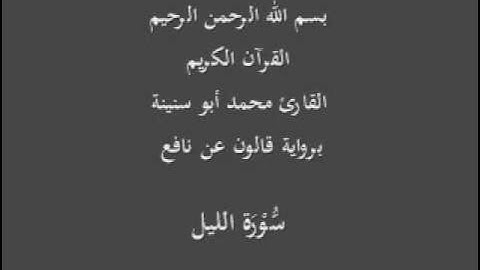 بسم الله الرحمن الرحيم
القرآن الكريم
القارئ محمد أبو سنينة
برواية قالون عن نافع
سُّوْرَة الليل